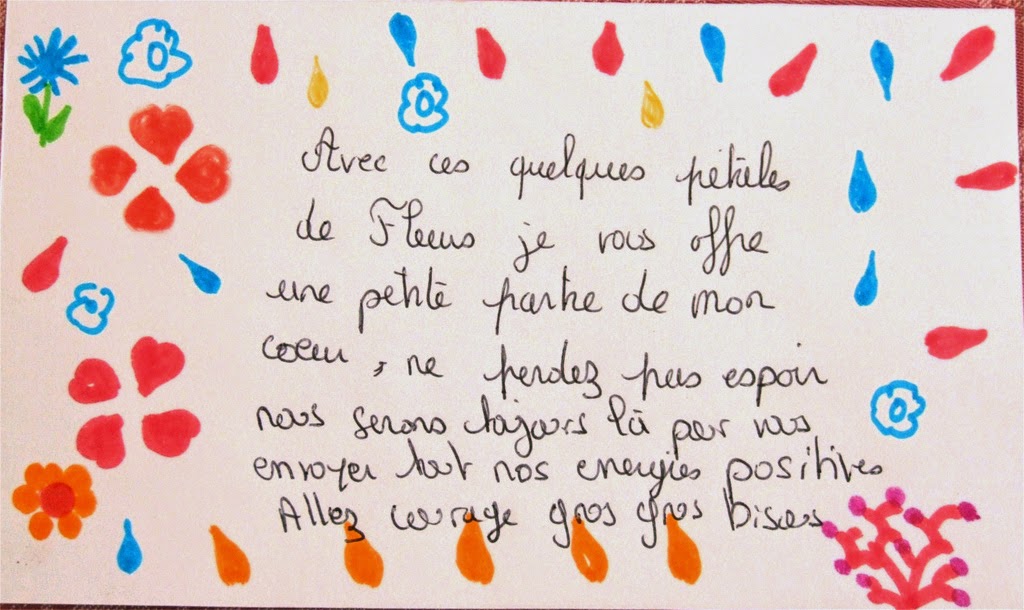 Avec ces quelques pétales
de Fleurs je vous offre
une petite partie de mon
coeur, ne perdez pas espoir
nous serons toujours là pour vous
envoyer tout nos energies positives
Allez courage gros gros bisous